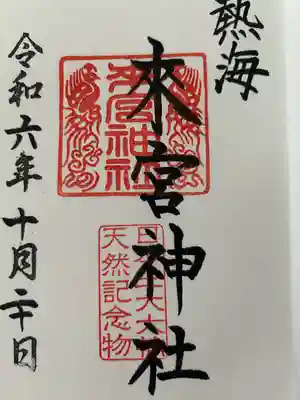 熱海
來宮神社
令和六年十月二十日
來宮神社
天然記念物